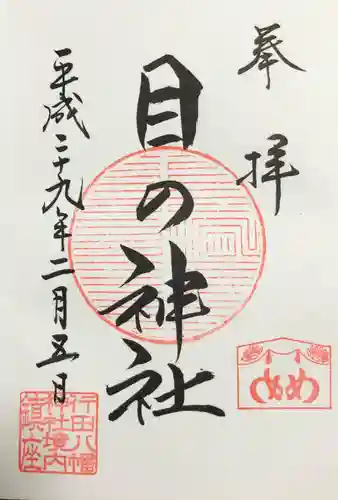 奉拝
目の神社
平成二十九年二月五日
めめ
行田八幡
神社境内
鎮座